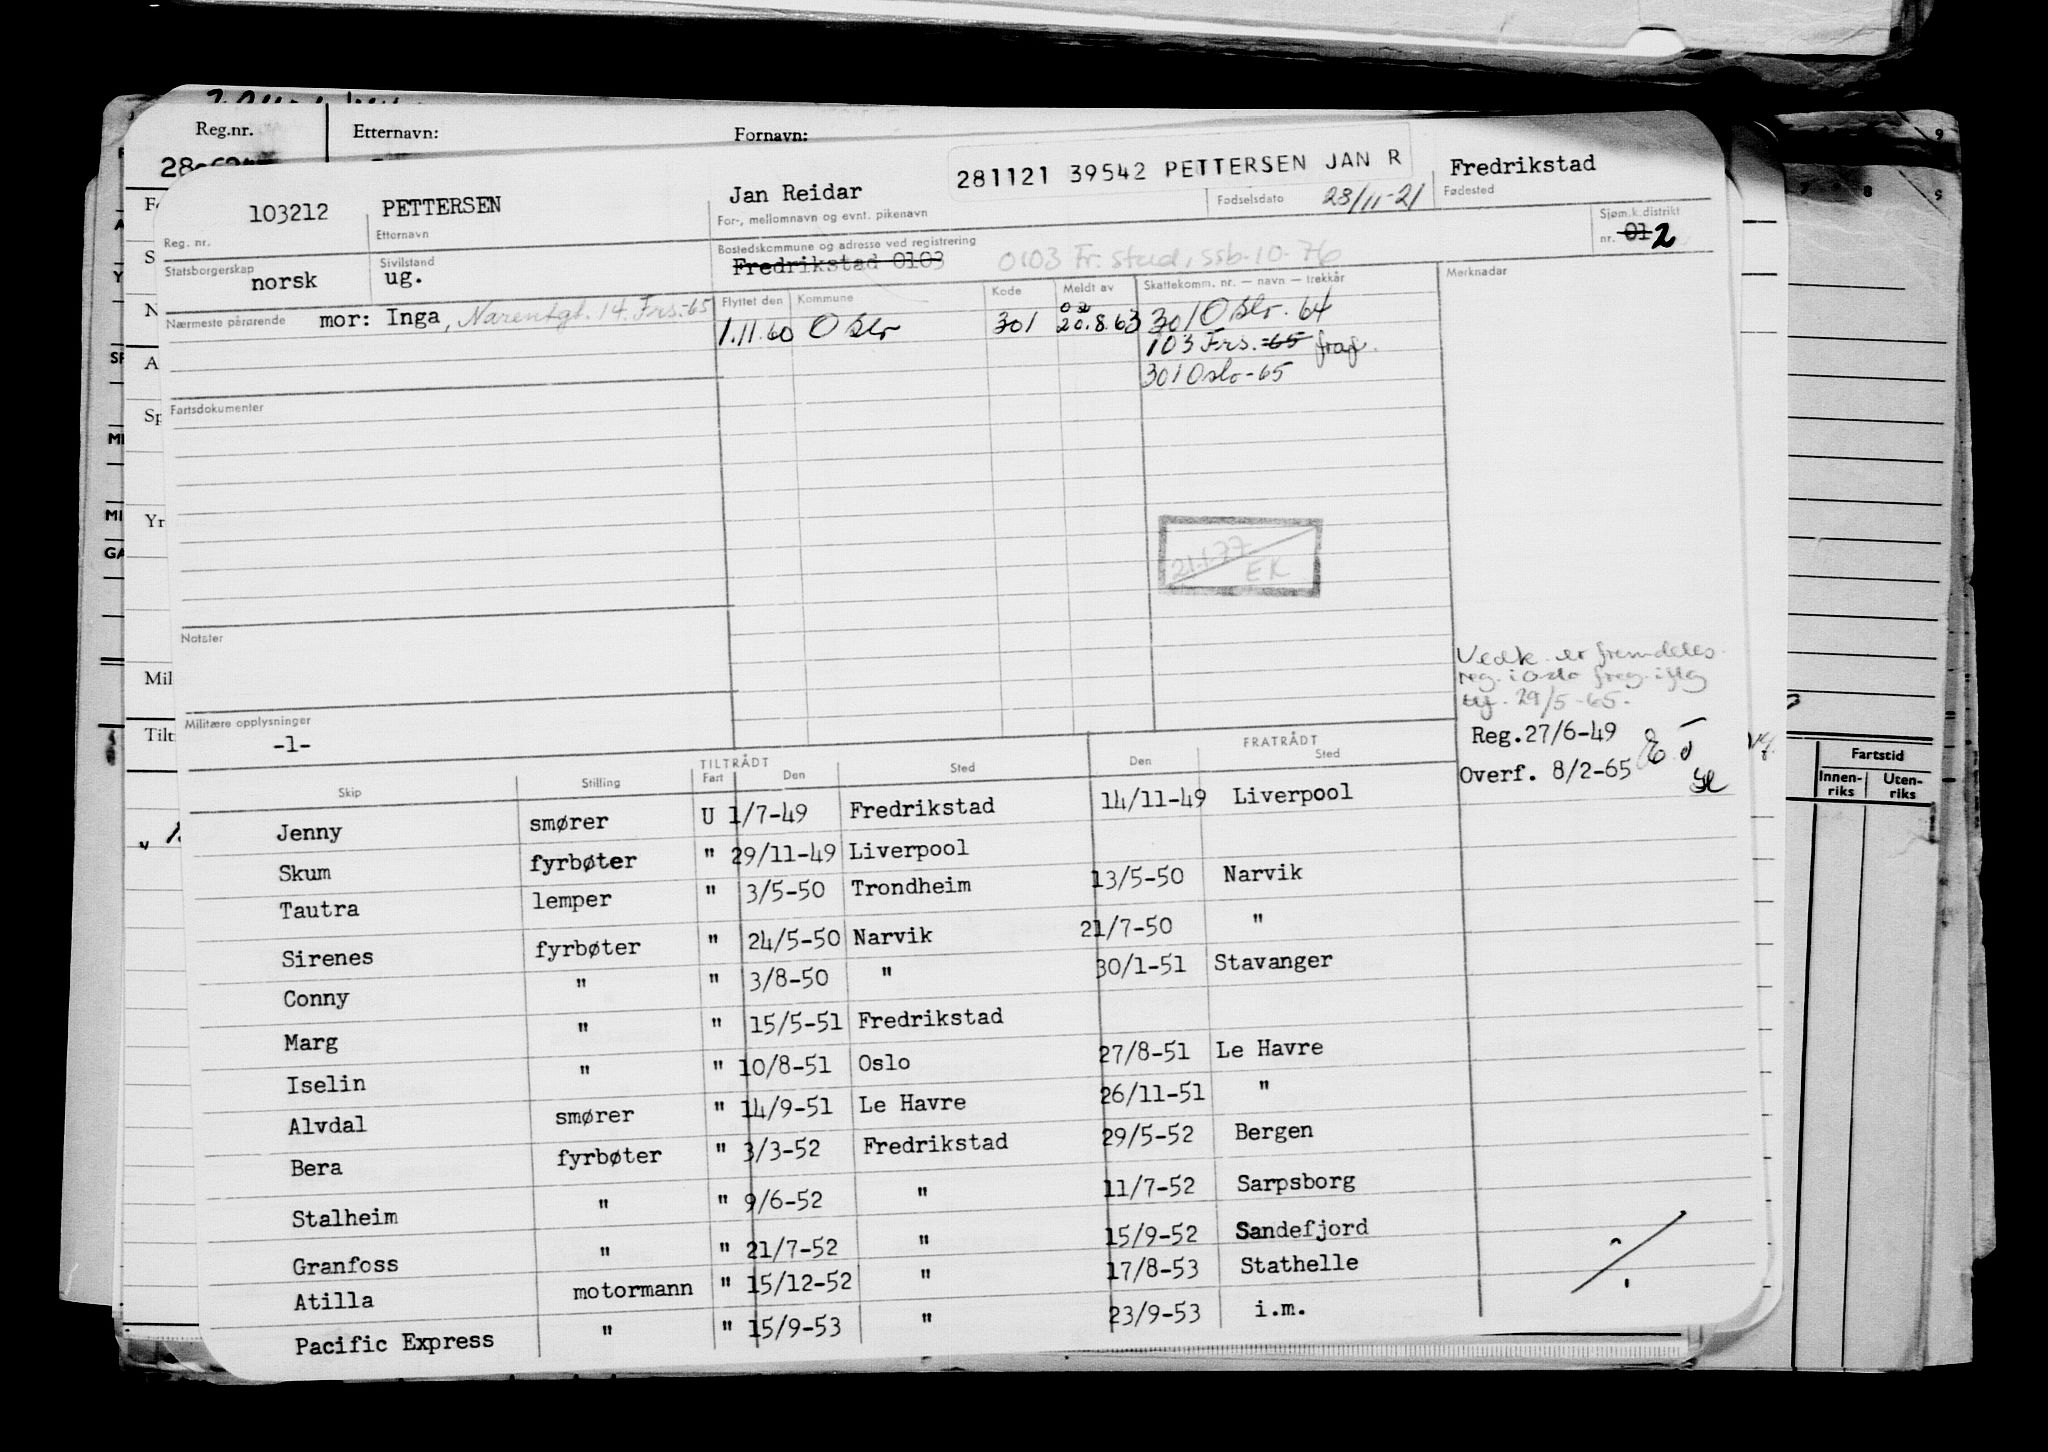 Reg.nr. Etternavn: Fornavn:
281121 39542 PETTERSEN JAN R
103212 PETTERSEN Jan Reidar 28/11-21 Fredrikstad
Reg. nr. Etternavn For-, mellomnavn og evnt. pikenavn Fødselsdato Fødested
Statsborgerskap norsk Sivilstand ug. Bostedskommune og adresse ved registrering Sjøm.k.distrikt nr. 01 2
Fredrikstad 0103 0103 Fr.stad, ssb-10-76
Nærmeste pårørende mor: Inga, 14. Frs.-65
Flyttet den Kommune Kode Meldt av Skattekomm. nr. — navn — trekkår Merknader
1.11.60 Oslo 301 20.8.63 301 Oslo. 64
103 Frs. -65 frag.
301 Oslo-65
Fartsdokumenter
21.1.77
EK
Notater
Vedk. er fremdeles
reg. i Oslo freg. iflg
29/5-65.
Militære opplysninger
-1-
Reg.27/6-49
Overf. 8/2-65
TILTRÅDT FRATRÅDT
Skip Stilling Fart Den Sted Den Sted
Jenny smører U 1/7-49 Fredrikstad 14/11-49 Liverpool
Skum fyrbøter " 29/11-49 Liverpool
Tautra lemper " 3/5-50 Trondheim 13/5-50 Narvik
Sirenes fyrbøter " 24/5-50 Narvik 21/7-50 "
Conny " " 3/8-50 " 30/1-51 Stavanger
Marg " " 15/5-51 Fredrikstad
Iselin " " 10/8-51 Oslo 27/8-51 Le Havre
Alvdal smører " 14/9-51 Le Havre 26/11-51 "
Bera fyrbøter " 3/3-52 Fredrikstad 29/5-52 Bergen
Stalheim " " 9/6-52 " 11/7-52 Sarpsborg
Granfoss " " 21/7-52 " 15/9-52 Sandefjord
Atilla motormann " 15/12-52 " 17/8-53 Stathelle
Pacific Express " " 15/9-53 " 23/9-53 i.m.
Fartstid
Innen-riks Uten-riks